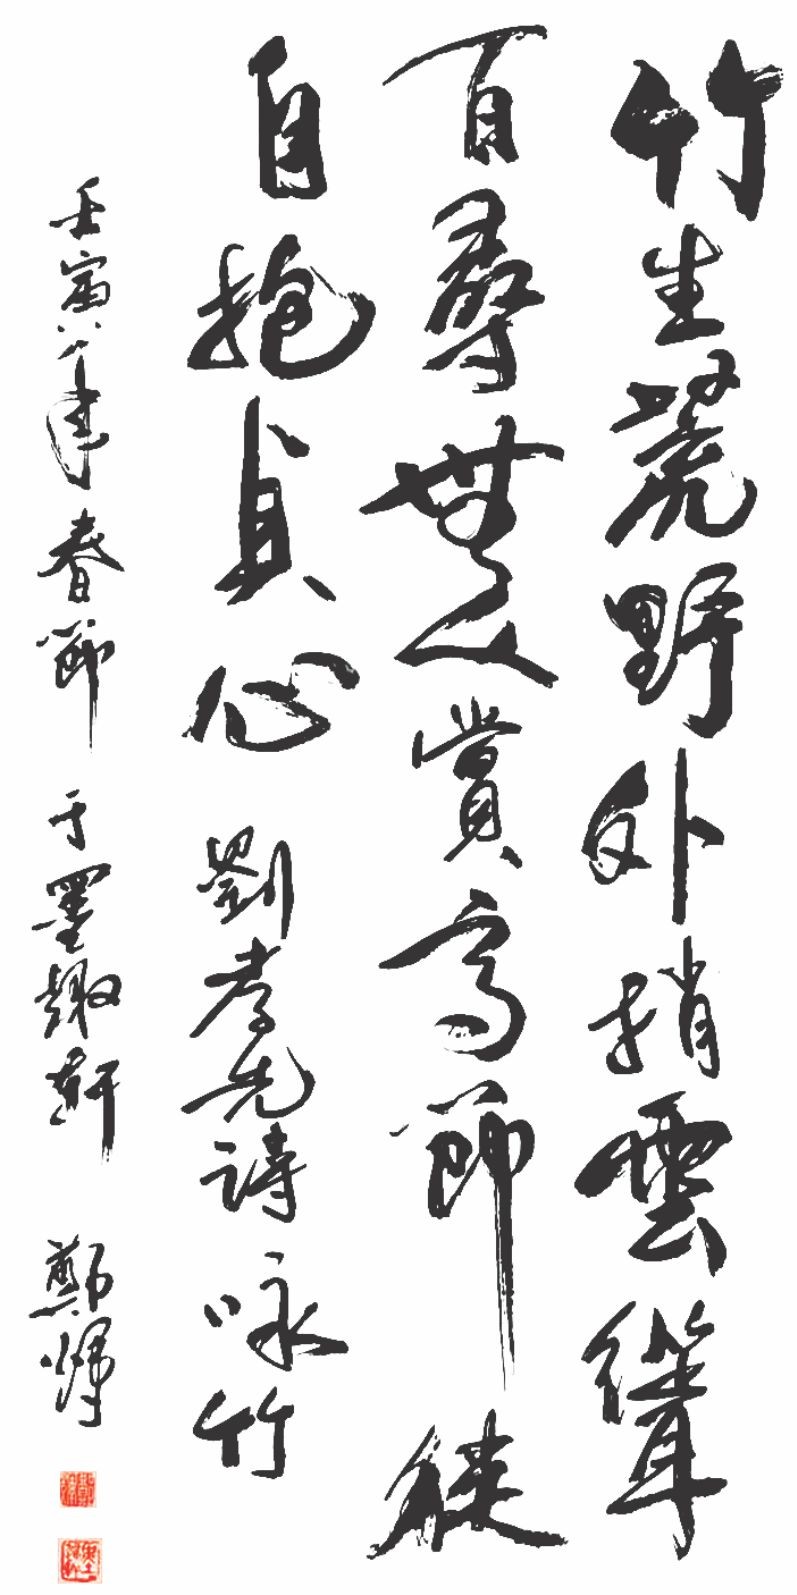 竹生荒野外梢雲聳
百尋無人賞高節徒
自抱貞心 劉孝先詩 咏竹
壬寅年春節 于墨趣軒 鄭